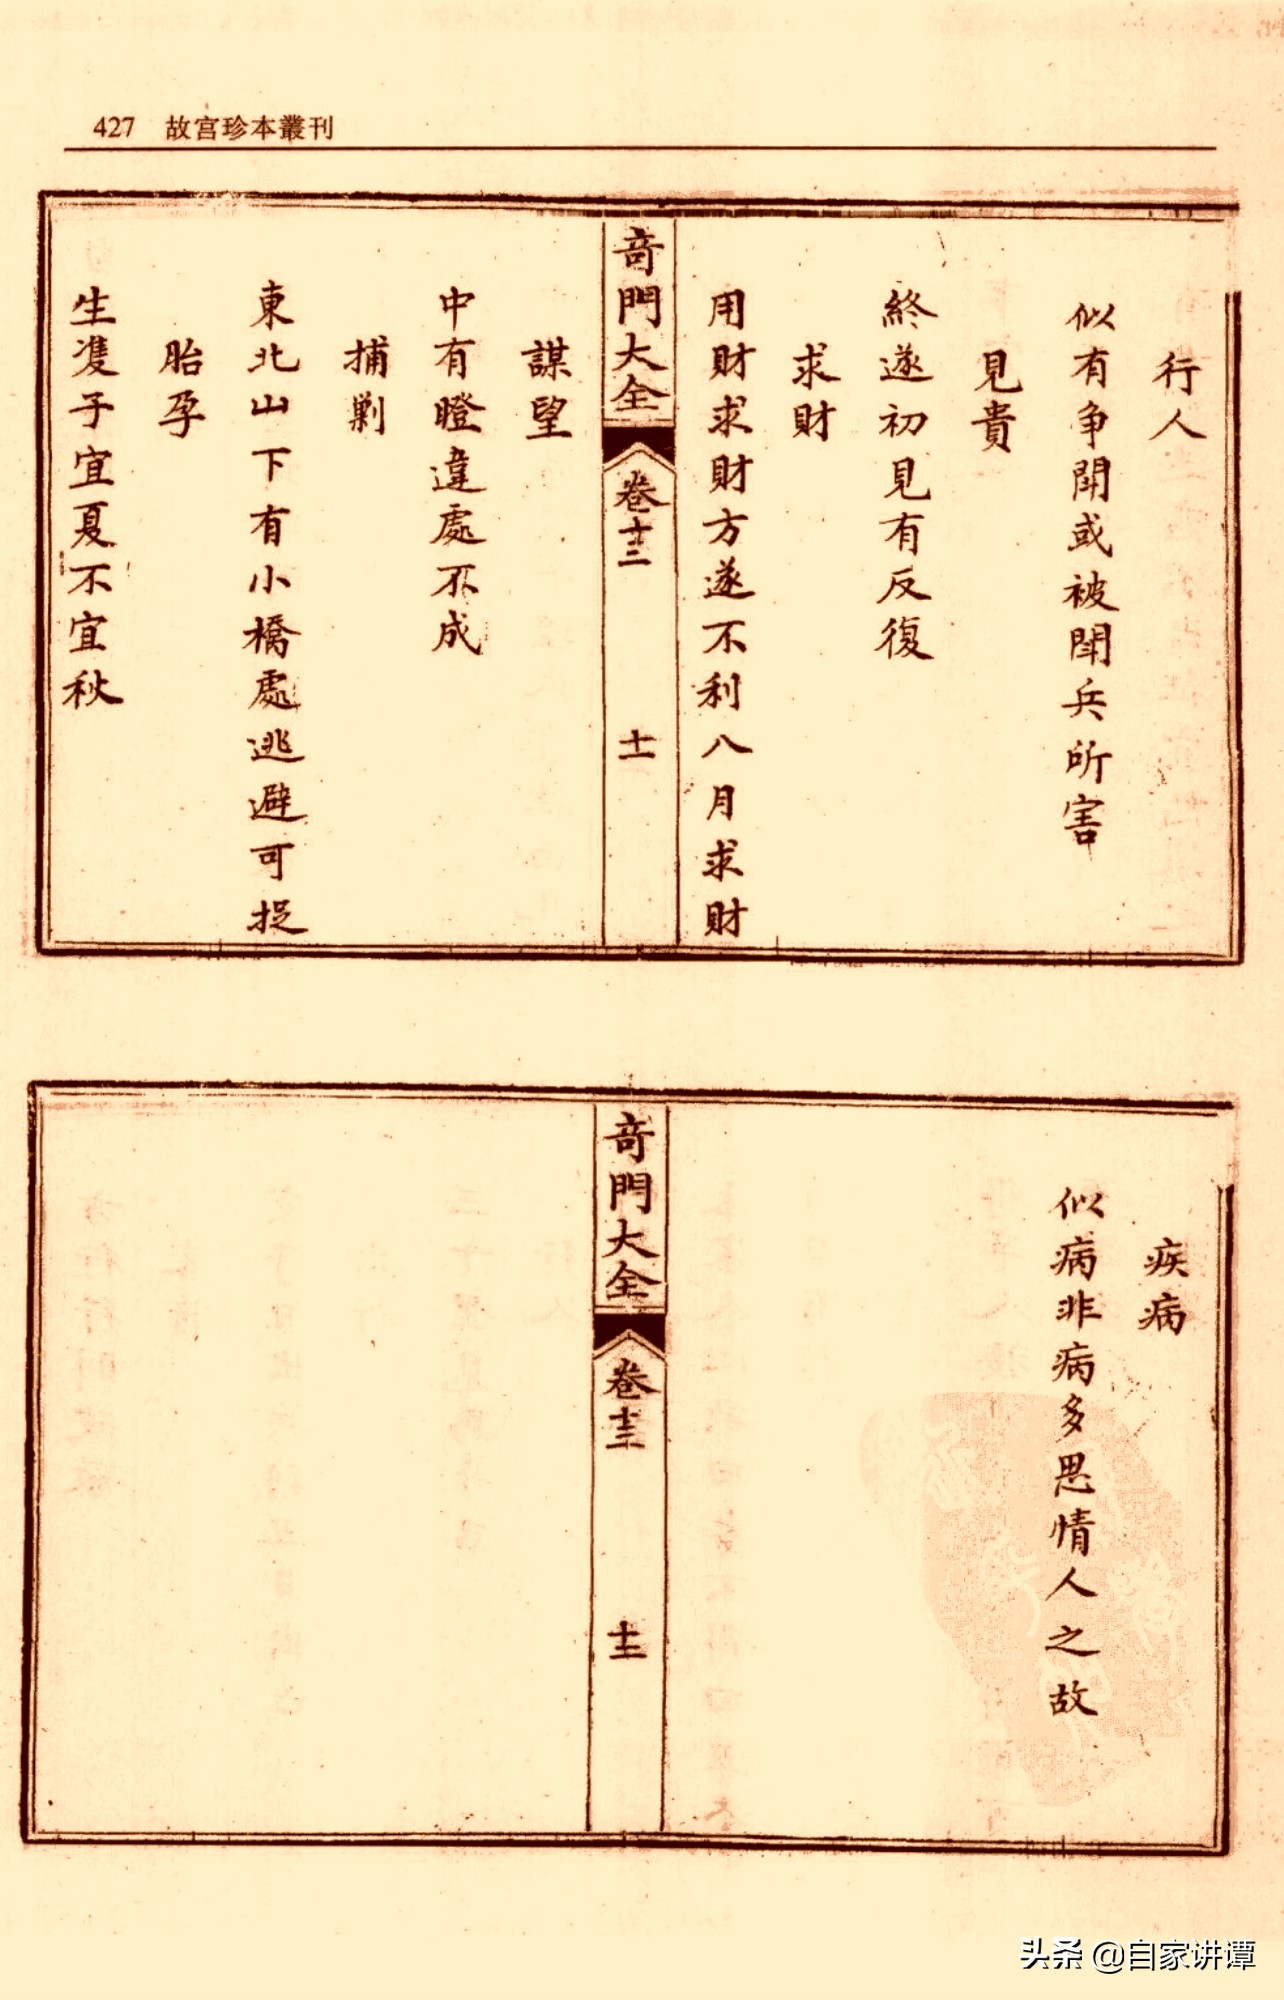 427 故宮珍本叢刊
行人
似有争鬪或被鬪兵所害
見貴
終遂初見有反復
求財
用財求財方遂不利八月求財
奇門大全 卷十三 十一
謀望
中有瞪違處不成
捕剿
東北山下有小橋處逃避可捉
胎孕
生隻子宜夏不宜秋
疾病
似病非病多思情人之故
奇門大全 卷十三 十二
头条 @自家讲谭